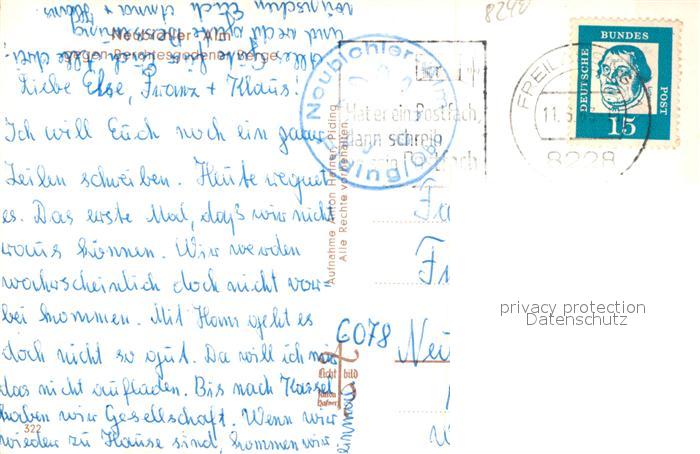 Neubichler Alm
gegen Berchtesgadener Berge
Liebe Else, Franz + Klaus!
Ich will Euch noch ein paar
Zeilen schreiben. Heute regnet
es. Das erste Mal, daß wir nicht
raus können. Wir werden
wahrscheinlich doch nicht vor=
bei kommen. Mit Hans geht es
doch nicht so gut. Da will ich mir
das nicht aufladen. Bis nach Kassel
haben wir Gesellschaft. Wenn wir
wieder zu Hause sind, kommen wir
einmal
322
Alles
und
wünschen Euch Anna + Hans
Aufnahme Anton Hafner, Piding
Alle Rechte vorbehalten
Neubichler Alm
Piding/Obb
Hat er ein Postfach,
dann schreib
sein Postfach
8242
FREIL
11.5.63
8228
DEUTSCHE
BUNDES
POST
15
Fa
Fr
6078
Neu
Licht bild
Anton
Hafner
privacy protection
Datenschutz